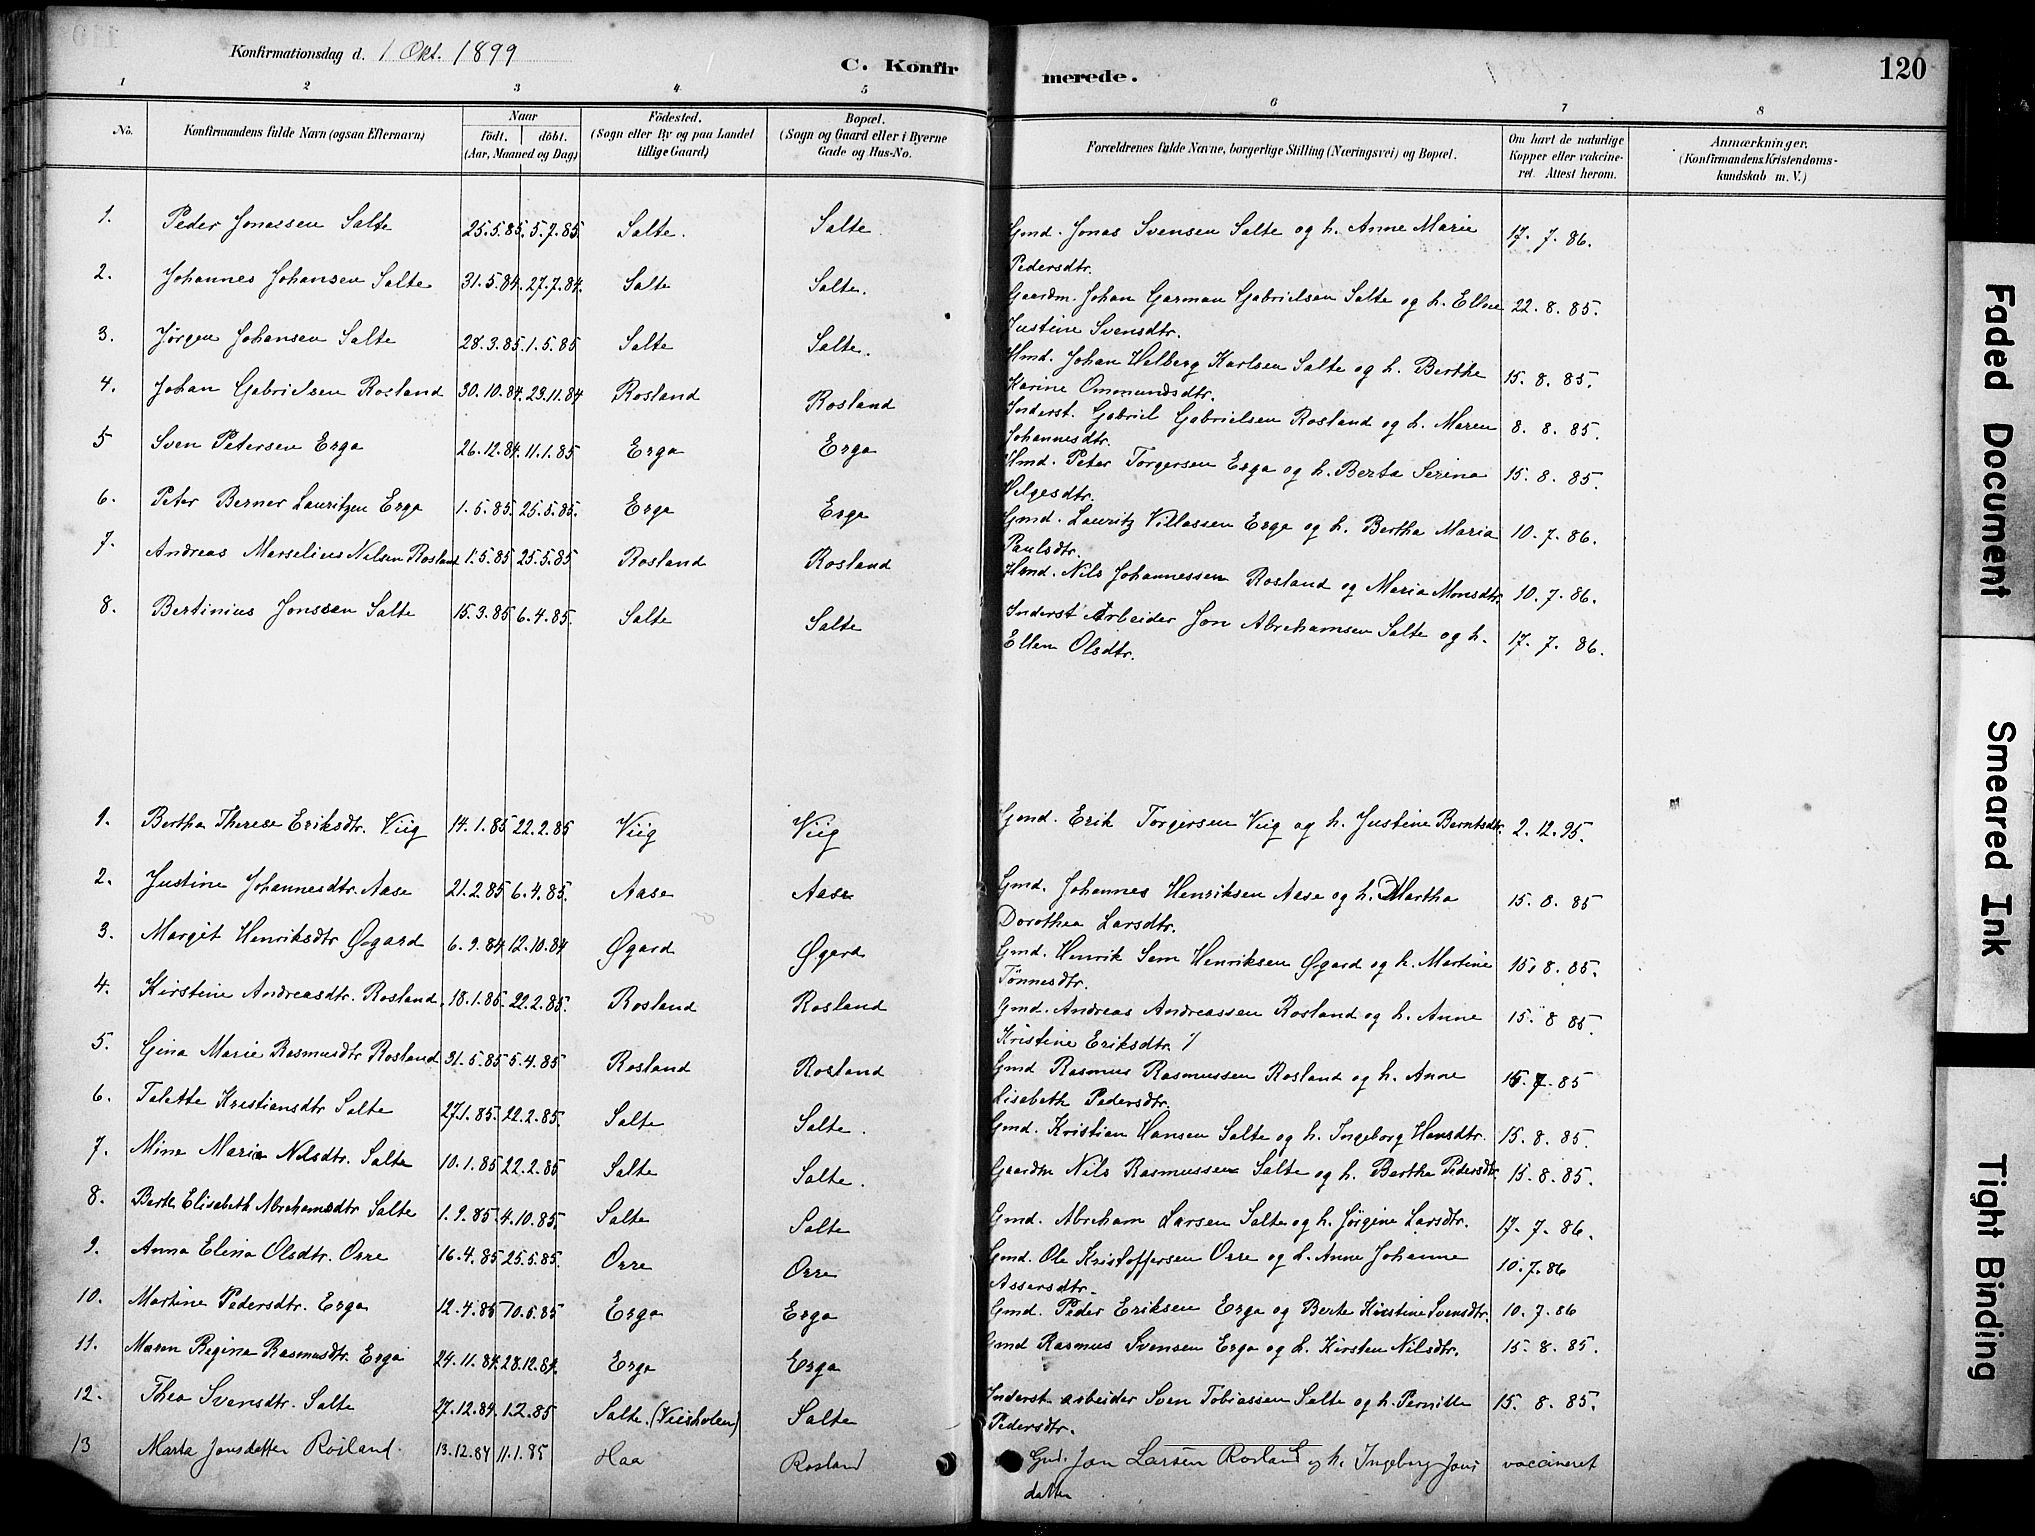 Konfirmationsdag d. 1 Okt. 1899
C. Konfirmerede.
120
1 2 3 4 5 6 7 8
No. Konfirmandens fulde Navn (ogsaa Efternavn) Naar födt. döbt. (Aar, Maaned og Dag) Födested. (Sogn eller By og paa Landet tillige Gaard) Bopæl. (Sogn og Gaard eller i Byerne Gade og Hus-No. Forældrenes fulde Navne, borgerlige Stilling (Næringsvei) og Bopæl. Om havt de naturlige Kopper eller vakcineret. Attest herom. Anmærkninger. (Konfirmandens Kristendomskundskab m. V.)
1. Peder Jonassen Salte 25.5.85. 5.7.85. Salte. Salte Gmd. Jonas Svensen Salte og h. Anne Marie 17. 7. 86.
Pedersdtr.
2. Johannes Johansen Salte 31.5.84. 27.7.84. Salte Salte. Gaardm. Johan Garman Gabrielsen Salte og h. Elene 22. 8. 85.
Justine Svensdtr.
3. Jørgen Johansen Salte 28.3.85. 1.5.85 Salte Salte. Hmd. Johan Welberg Karlsen Salte og h. Berthe 15. 8. 85.
Karine Ommundsdtr.
4. Johan Gabrielsen Rosland 30.10.84. 23.11.84 Rosland Rosland Inderst. Gabriel Gabrielsen Rosland og h. Maren 8. 8. 85.
Johannesdtr.
5 Sven Petersen Erga 26.12.84. 11.1.85 Erga Erga Hmd. Peter Torgersen Erga og h. Berta Serina 15. 8. 85.
Helgesdtr.
6. Peter Berner Lauritzen Erga 1.5.85. 25.5.85. Erga Erga Gmd. Lauritz Villassen Erga og h. Bertha Maria 10. 7. 86.
Paulsdtr.
7. Andreas Marselius Nilsen Rosland 1.5.85 25.5.85 Rosland Rosland Hmd. Nils Johannessen Rosland og Maria Monsdtr. 10. 7. 86.
8. Bertinius Jonssen Salte 15.3.85 6.4.85. Salte Salte Inderst Arbeider Jon Abrehamsen Salte og h. 17. 7. 86.
Ellen Olsdtr.
1. Bertha Therese Eriksdtr. Viig 14.1.85 22.2.85 Viig Viig Gmd. Erik Torgersen Viig og h. Justine Berntsdtr. 2. 12. 95.
2. Justine Johannesdtr. Aase 21.2.85 6.4.85. Aase Aase Gmd. Johannes Henriksen Aase og h. Martha 15. 8. 85
Dorothea Larsdtr.
3. Margit Henriksdtr Øgard 6.9.84 12.10.84 Øgard Øgard Gmd. Henrik Sem Henriksen Øgard og h. Martine 15. 8. 85.
Tönnesdtr.
4. Kirstine Andreasdtr. Rosland. 18.1.85. 22.2.85. Rosland Rosland Gmd. Andreas Andreassen Rosland og h. Anne 15. 8 85.
Kristine Eriksdtr.
5. Gina Marie Rasmusdtr Rosland 31.5.85 5.4.85 Rosland Rosland Gmd Rasmus Rasmussen Rosland og h. Anne 15. 7. 85
Lisabeth Pedersdtr.
6. Talette Kristiansdtr Salte 27.1.85. 22.2.85 Salte Salte. Gmd. Kristian Hansen Salte og h. Ingeborg Hansdtr. 15. 8. 85.
7. Mina Maria Nilsdtr. Salte 10.1.85 22.2.85 Salte Salte. Gaardm Nils Rasmussen Salte og h. Bertha Pedersdtr. 15. 8. 85.
8. Berte Elisabeth Abrehamsdtr Salte 1.9.85. 4.10.85. Salte Salte Gmd. Abreham Larsen Salte og h. Jørgine Larsdtr. 17. 7. 86.
9. Anna Elina Olsdtr. Orre 16.4.85 25.5.85. Orre Orre Gmd. Ole Kristoffersen Orre og h. Anne Johanne 10. 7. 86
Assersdtr.
10. Martine Pedersdtr. Erga 12.4.85 10.5.85 Erga Erga Gmd. Peder Eriksen Erga og Berte Kirstine Svensdtr. 10. 7. 86
11. Maren Regina Rasmusdtr. Erga 24.11.84. 28.12.84. Erga Erga Gmd Rasmus Svensen Erga og h. Kirsten Nilsdtr. 15. 8. 85.
12. Thea Svensdtr. Salte 27.12.84. 1.2.85 Salte. Salte Inderst arbeider Sven Tobiassen Salte og h. Pernille 15. 8. 85.
Pedersdtr.
13 Marta Jonsdatter Rosland. 13.12.84 11.1.85 Haa Rosland Gmd. Jon Larsen Rosland og h. Ingeborg Jons vaccineret
datter
Faded Document
Smeared Ink
Tight Binding